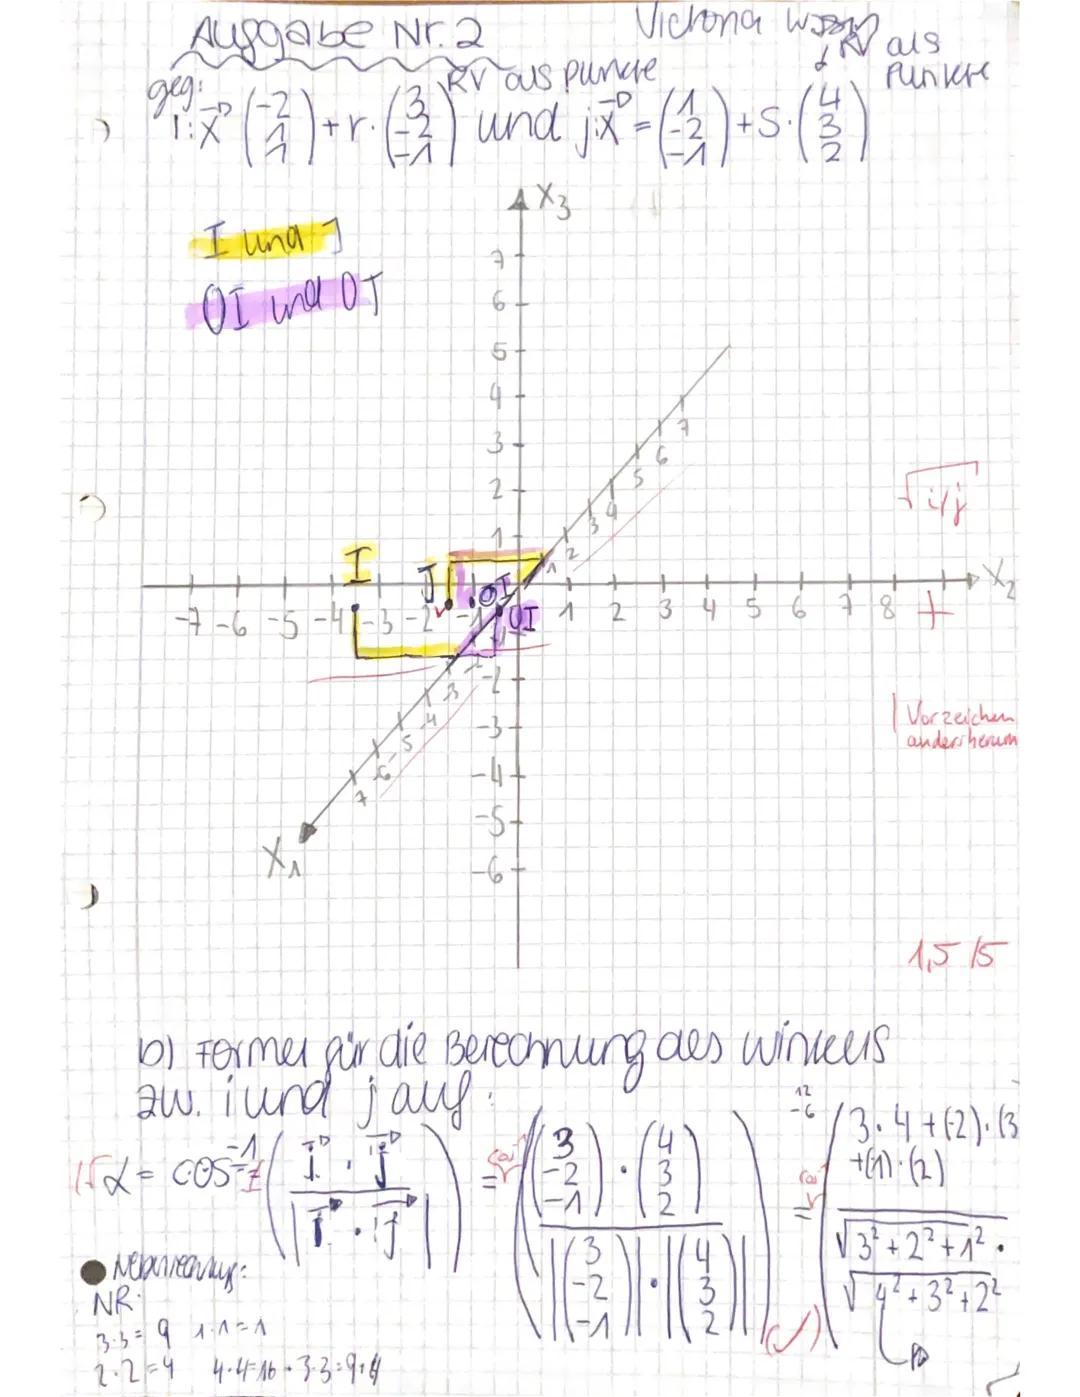 Aufgabe Nr. 2
Victoria
RV als Punkte
geg:
RV als Punkte
i: x⃗ (-2 1 1) + r · (3 -2 -1) und j: x⃗ = (1 -2 -1) + s · (4 3 2)
X₃
I und J
OI und OJ
7
6
5
4
3
2
1
1 2 3 4 5 6 7
√ i/j
I
J
OI
OI
X₂
-7 -6 -5 -4 -3 -2 -1 1 2 3 4 5 6 7 8
+
-2
-3
-4
-5
-6
3 4 5 6 7
Vorzeichen
andersherum
X₁
1,5 /5
b) Formel für die Berechnung des Winkels
zw. i und j auf:
α = cos⁻¹ ( i⃗ · j⃗ / |i⃗ · j⃗| ) = cos⁻¹ ( (3 -2 -1) · (4 3 2) / |(3 -2 -1)| · |(4 3 2)| ) = cos⁻¹ ( 3·4+(-2)·(3
12
-6
+(-1)·(2)
√3²+2²+1² ·
√4²+3²+2²
(√)
Nebenrechnung:
NR:
3·3=9 1·1=1
2·2=4 4·4=16 · 3·3=9+4